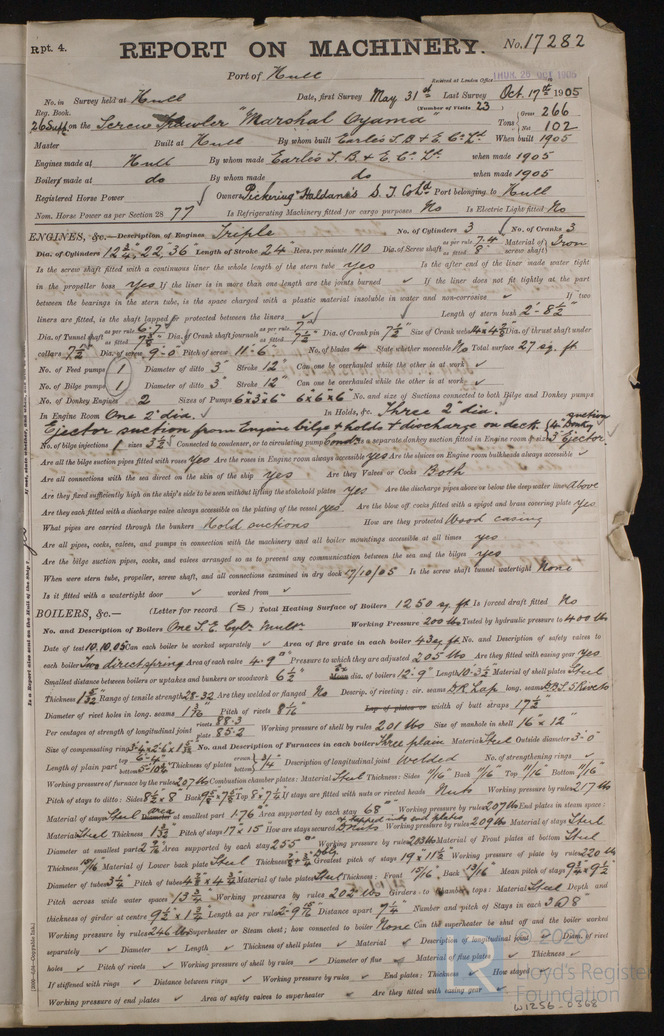 Rpt. 4. REPORT ON MACHINERY. No. 17282
Port of Hull
Received at London Office THUR. 26 OCT 1905
No. in Survey held at Hull Date, first Survey May 31st Last Survey Oct. 17th 1905
Reg. Book. (Number of Visits 23)
26 Supp on the Screw Trawler "Marshal Oyama" Tons Gross 266 Net 102
Master Built at Hull By whom built Earle's S.B. & E. Co. Ld. When built 1905
Engines made at Hull By whom made Earle's S.B. & E. Co. Ld. when made 1905
Boilers made at do By whom made do when made 1905
Registered Horse Power Owners Pickering & Haldane's S.T. Co Ld Port belonging to Hull
Nom. Horse Power as per Section 28 77 Is Refrigerating Machinery fitted for cargo purposes No Is Electric Light fitted No
ENGINES, &c.—Description of Engines Triple No. of Cylinders 3 No. of Cranks 3
Dia. of Cylinders 12¾", 22", 36" Length of Stroke 24" Revs. per minute 110 Dia. of Screw shaft as per rule 7.4 as fitted 8" Material of screw shaft Iron
Is the screw shaft fitted with a continuous liner the whole length of the stern tube yes Is the after end of the liner made water tight
in the propeller boss yes If the liner is in more than one length are the joints burned ✓ If the liner does not fit tightly at the part
between the bearings in the stern tube, is the space charged with a plastic material insoluble in water and non-corrosive ✓ If two
liners are fitted, is the shaft lapped or protected between the liners ✓ Length of stern bush 2'-8½"
Dia. of Tunnel shaft as per rule 6.7" as fitted 7⅛" Dia. of Crank shaft journals as per rule 7" as fitted 7½" Dia. of Crank pin 7½" Size of Crank webs 14 x 4¾ Dia. of thrust shaft under
collars 7½" Dia. of screw 9-0 Pitch of screw 11-6 No. of blades 4 State whether moveable No Total surface 27 sq. ft
No. of Feed pumps 1 Diameter of ditto 3" Stroke 12" Can one be overhauled while the other is at work ✓
No. of Bilge pumps 1 Diameter of ditto 3" Stroke 12" Can one be overhauled while the other is at work ✓
No. of Donkey Engines 2 Sizes of Pumps 6"x3"x6" 6"x6"x6" No. and size of Suctions connected to both Bilge and Donkey pumps
In Engine Room One 2" dia. In Holds, &c. Three 2" dia.
Ejector suction from Engine bilge & holds & discharge on deck.
No. of bilge injections 1 sizes 3½" Connected to condenser, or to circulating pump Condr. Is a separate donkey suction fitted in Engine room & size 3" Ejector.
Are all the bilge suction pipes fitted with roses yes Are the roses in Engine room always accessible yes Are the sluices on Engine room bulkheads always accessible ✓
Are all connections with the sea direct on the skin of the ship yes Are they Valves or Cocks Both
Are they fixed sufficiently high on the ship's side to be seen without lifting the stokehold plates yes Are the discharge pipes above or below the deep water line above
Are they each fitted with a discharge valve always accessible on the plating of the vessel yes Are the blow off cocks fitted with a spigot and brass covering plate yes
What pipes are carried through the bunkers Hold suctions How are they protected Wood casing
Are all pipes, cocks, valves, and pumps in connection with the machinery and all boiler mountings accessible at all times yes
Are the bilge suction pipes, cocks, and valves arranged so as to prevent any communication between the sea and the bilges yes
When were stern tube, propeller, screw shaft, and all connections examined in dry dock 17/10/05 Is the screw shaft tunnel watertight None
Is it fitted with a watertight door ✓ worked from ✓
BOILERS, &c.— (Letter for record (S) ) Total Heating Surface of Boilers 1250 sq. ft Is forced draft fitted No
No. and Description of Boilers One S.E. Cyl. Multr. Working Pressure 200 lbs Tested by hydraulic pressure to 400 lbs
Date of test 10.10.05 Can each boiler be worked separately ✓ Area of fire grate in each boiler 43 sq. ft. No. and Description of safety valves to
each boiler Two direct spring Area of each valve 4.9" Pressure to which they are adjusted 205 lbs Are they fitted with easing gear yes
Smallest distance between boilers or uptakes and bunkers or woodwork 6½" Mean dia. of boilers 12'-9" Length 10-3½" Material of shell plates Steel
Thickness 1 5/32" Range of tensile strength 28-32 Are they welded or flanged No Descrip. of riveting: cir. seams D.R. Lap long. seams D.B.S. 5 Rivets
Diameter of rivet holes in long. seams 1 3/16" Pitch of rivets 8 1/16" Lap of plates or width of butt straps 17½"
Per centages of strength of longitudinal joint rivets 88.3 plate 85.2 Working pressure of shell by rules 201 lbs Size of manhole in shell 16" x 12"
Size of compensating ring No. and Description of Furnaces in each boiler Three plain Material Steel Outside diameter 3'-0"
Length of plain part top 6-4" bottom 5-10½" Thickness of plates crown bottom ¾" Description of longitudinal joint Welded No. of strengthening rings ✓
Working pressure of furnace by the rules 207 lbs Combustion chamber plates: Material Steel Thickness: Sides 11/16" Back 11/16" Top 11/16" Bottom 11/16"
Pitch of stays to ditto: Sides 8½" x 8" Back 9⅝ x 7⅞ Top 8 x 7½ If stays are fitted with nuts or riveted heads Nuts Working pressure by rules 217 lbs
Material of stays Steel area Diameter at smallest part 1.76 Area supported by each stay 68" Working pressure by rules 207 lbs End plates in steam space:
Material Steel Thickness 1 3/32" Pitch of stays 17" x 15" How are stays secured & tapped into end plates D. Nuts Working pressure by rules 209 lbs Material of stays Steel
Diameter at smallest part 2 Area supported by each stay 255" Working pressure by rules 203 lbs Material of Front plates at bottom Steel
Thickness 15/16" Material of Lower back plate Steel Thickness Greatest pitch of stays 19 x 11½" Working pressure of plate by rules 220 lbs
Diameter of tubes 3¼" Pitch of tubes 4¾ x 4¾ Material of tube plates Steel Thickness: Front 15/16" Back 13/16" Mean pitch of stays 9½ x 9½
Pitch across wide water spaces 13¾" Working pressures by rules 202 lbs Girders to Chamber tops: Material Steel Depth and
thickness of girder at centre 9½" x 1¾" Length as per rule Distance apart 7¼" Number and pitch of Stays in each 3 @ 8"
Working pressure by rules 246 lbs Superheater or Steam chest; how connected to boiler None Can the superheater be shut off and the boiler worked
separately ✓ Diameter ✓ Length ✓ Thickness of shell plates ✓ Material ✓ Description of longitudinal joint ✓ Diam. of rivet
holes ✓ Pitch of rivets ✓ Working pressure of shell by rules ✓ Diameter of flue ✓ Material of flue plates ✓ Thickness ✓
If stiffened with rings ✓ Distance between rings ✓ Working pressure by rules ✓ End plates: Thickness ✓ How stayed
Working pressure of end plates ✓ Area of safety valves to superheater ✓ Are they fitted with easing gear ✓
© 2020
Lloyd's Register
Foundation
W1256-0368